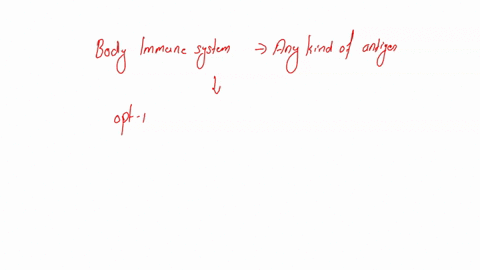 Body Immune system → Any kind of antigen
↓
opt-1